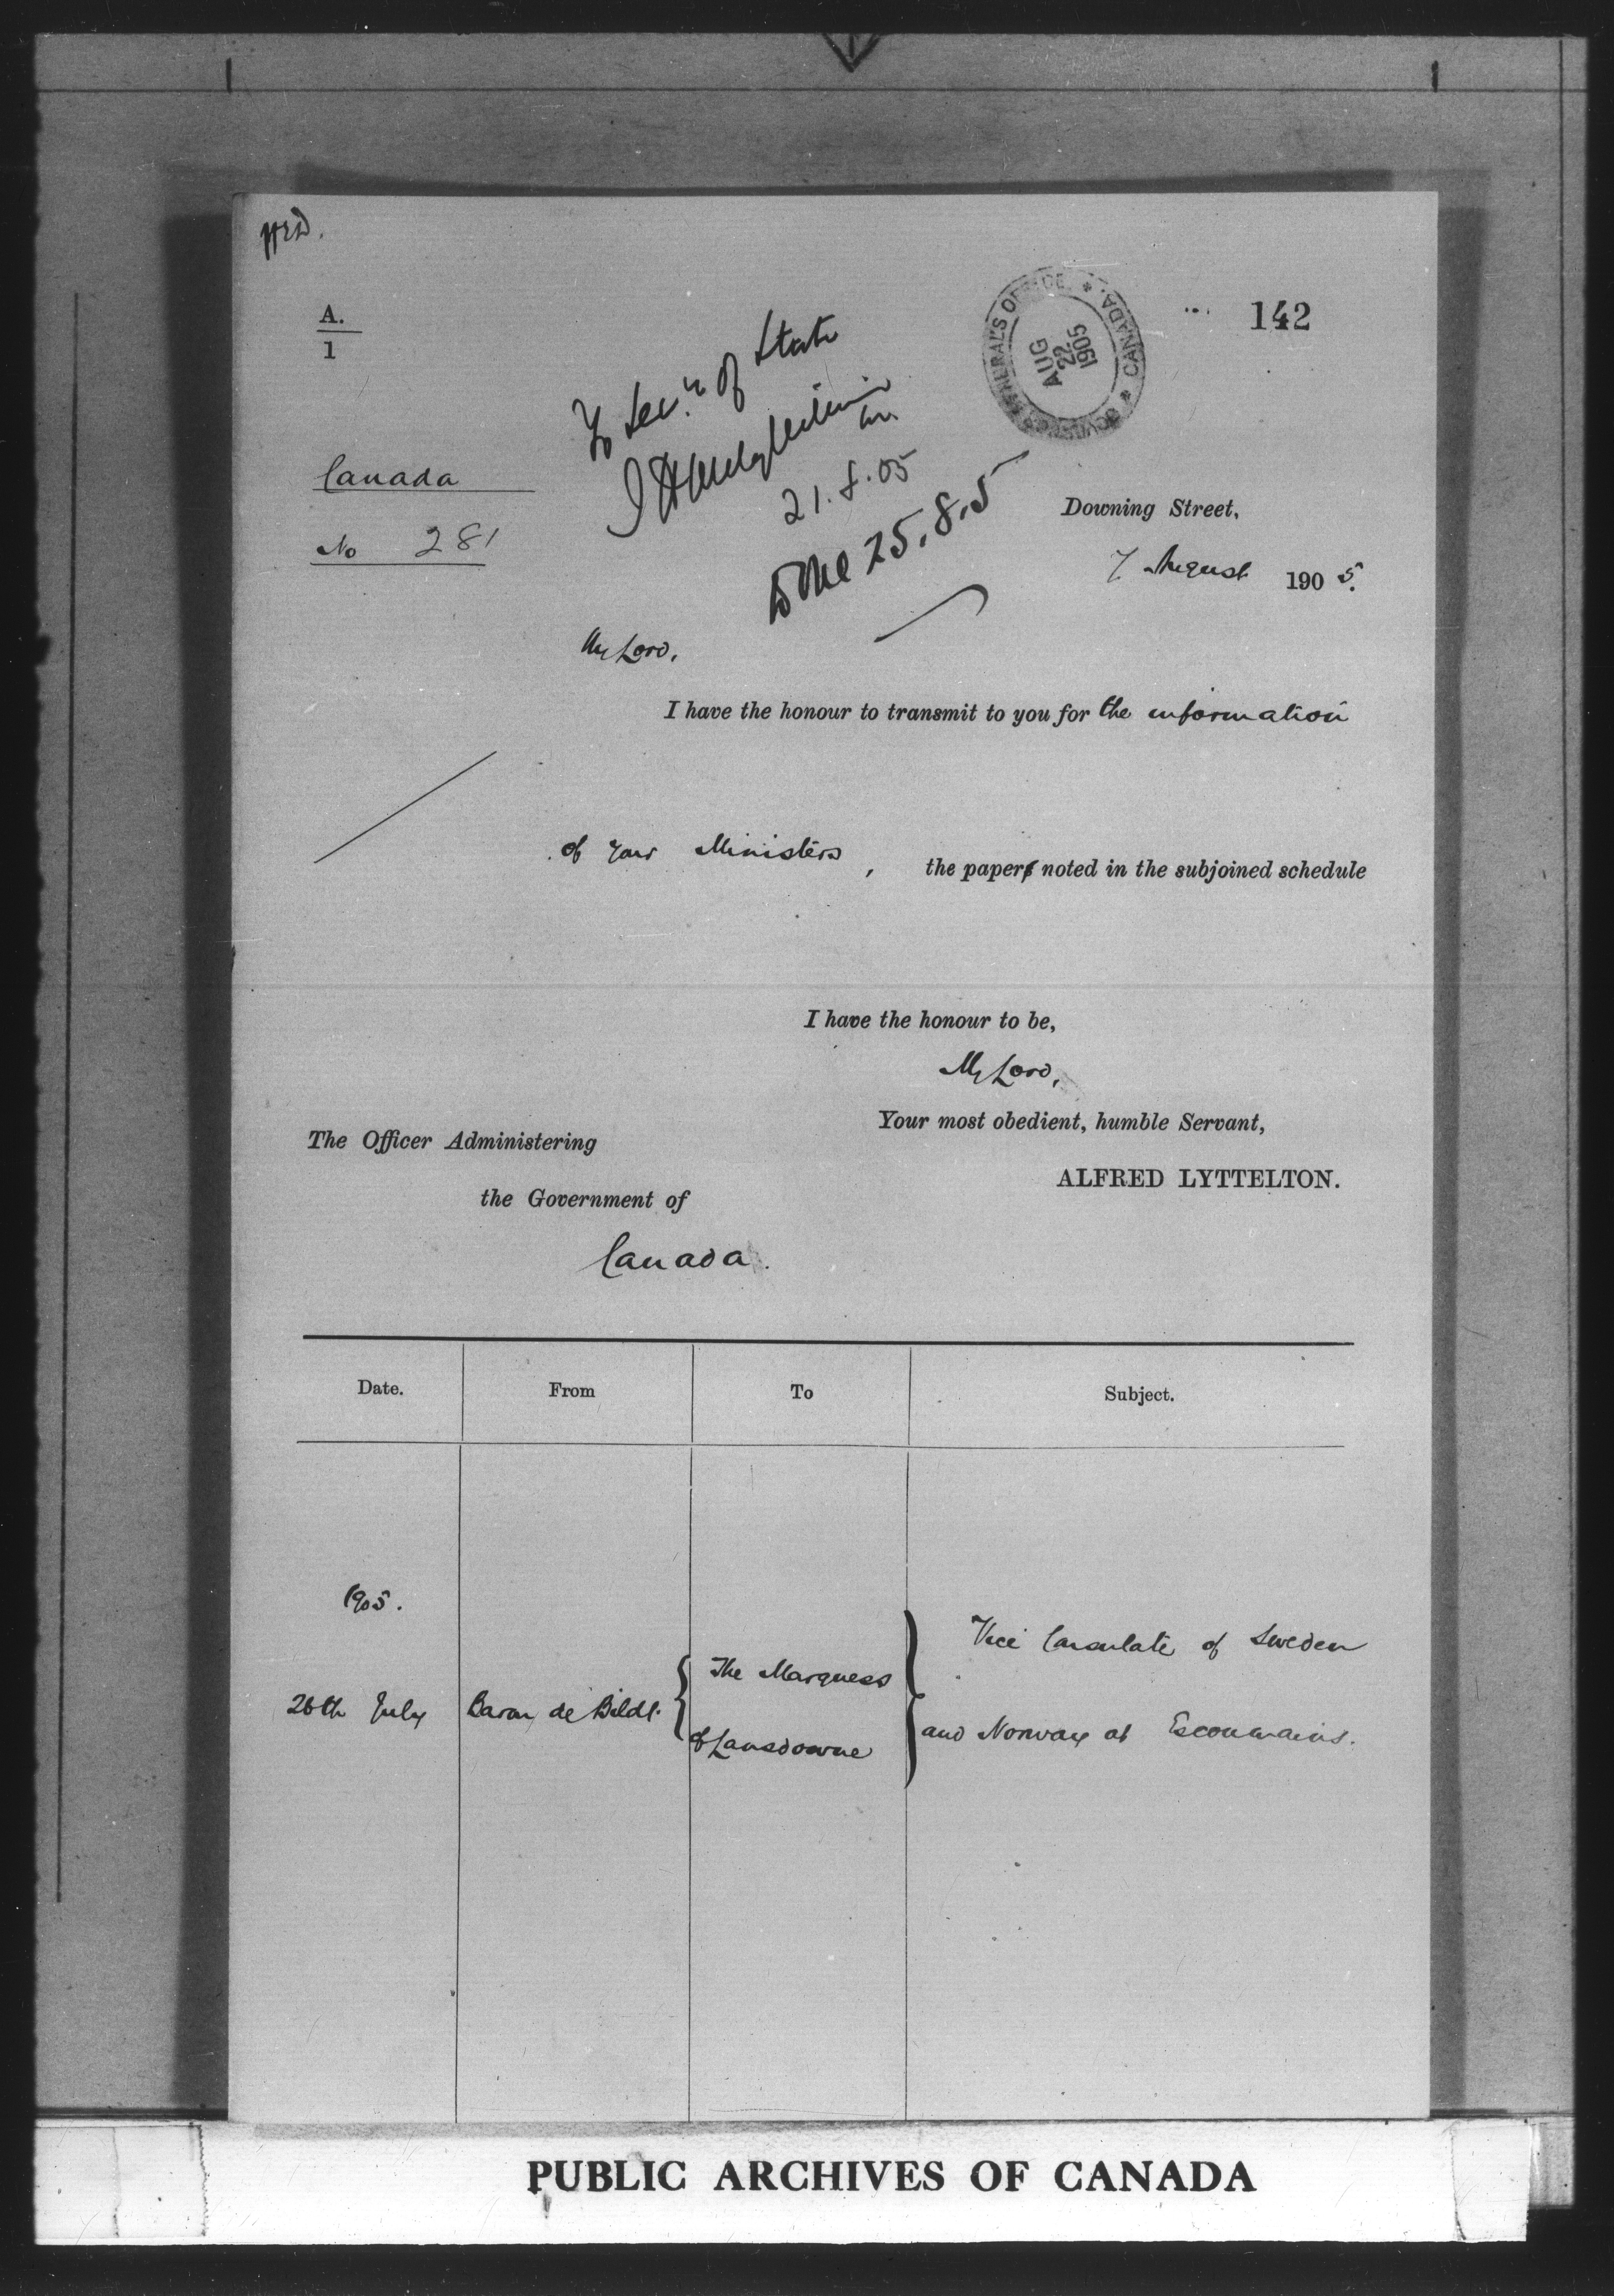 A.
1
142
GOVERNOR GENERAL'S OFFICE * CANADA *
AUG
22
1905
To Secy of State
21.8.05
Done 25.8.5
Canada
No 281
Downing Street,
7 August 1905.
My Lord,
I have the honour to transmit to you for the information
of your Ministers, the paper noted in the subjoined schedule
I have the honour to be,
My Lord,
Your most obedient, humble Servant,
ALFRED LYTTELTON.
The Officer Administering
the Government of
Canada.
Date. From To Subject.
1905.
26th July Baron de Bildt. The Marquess
of Lansdowne
Vice Consulate of Sweden
and Norway at Escoumains.
PUBLIC ARCHIVES OF CANADA